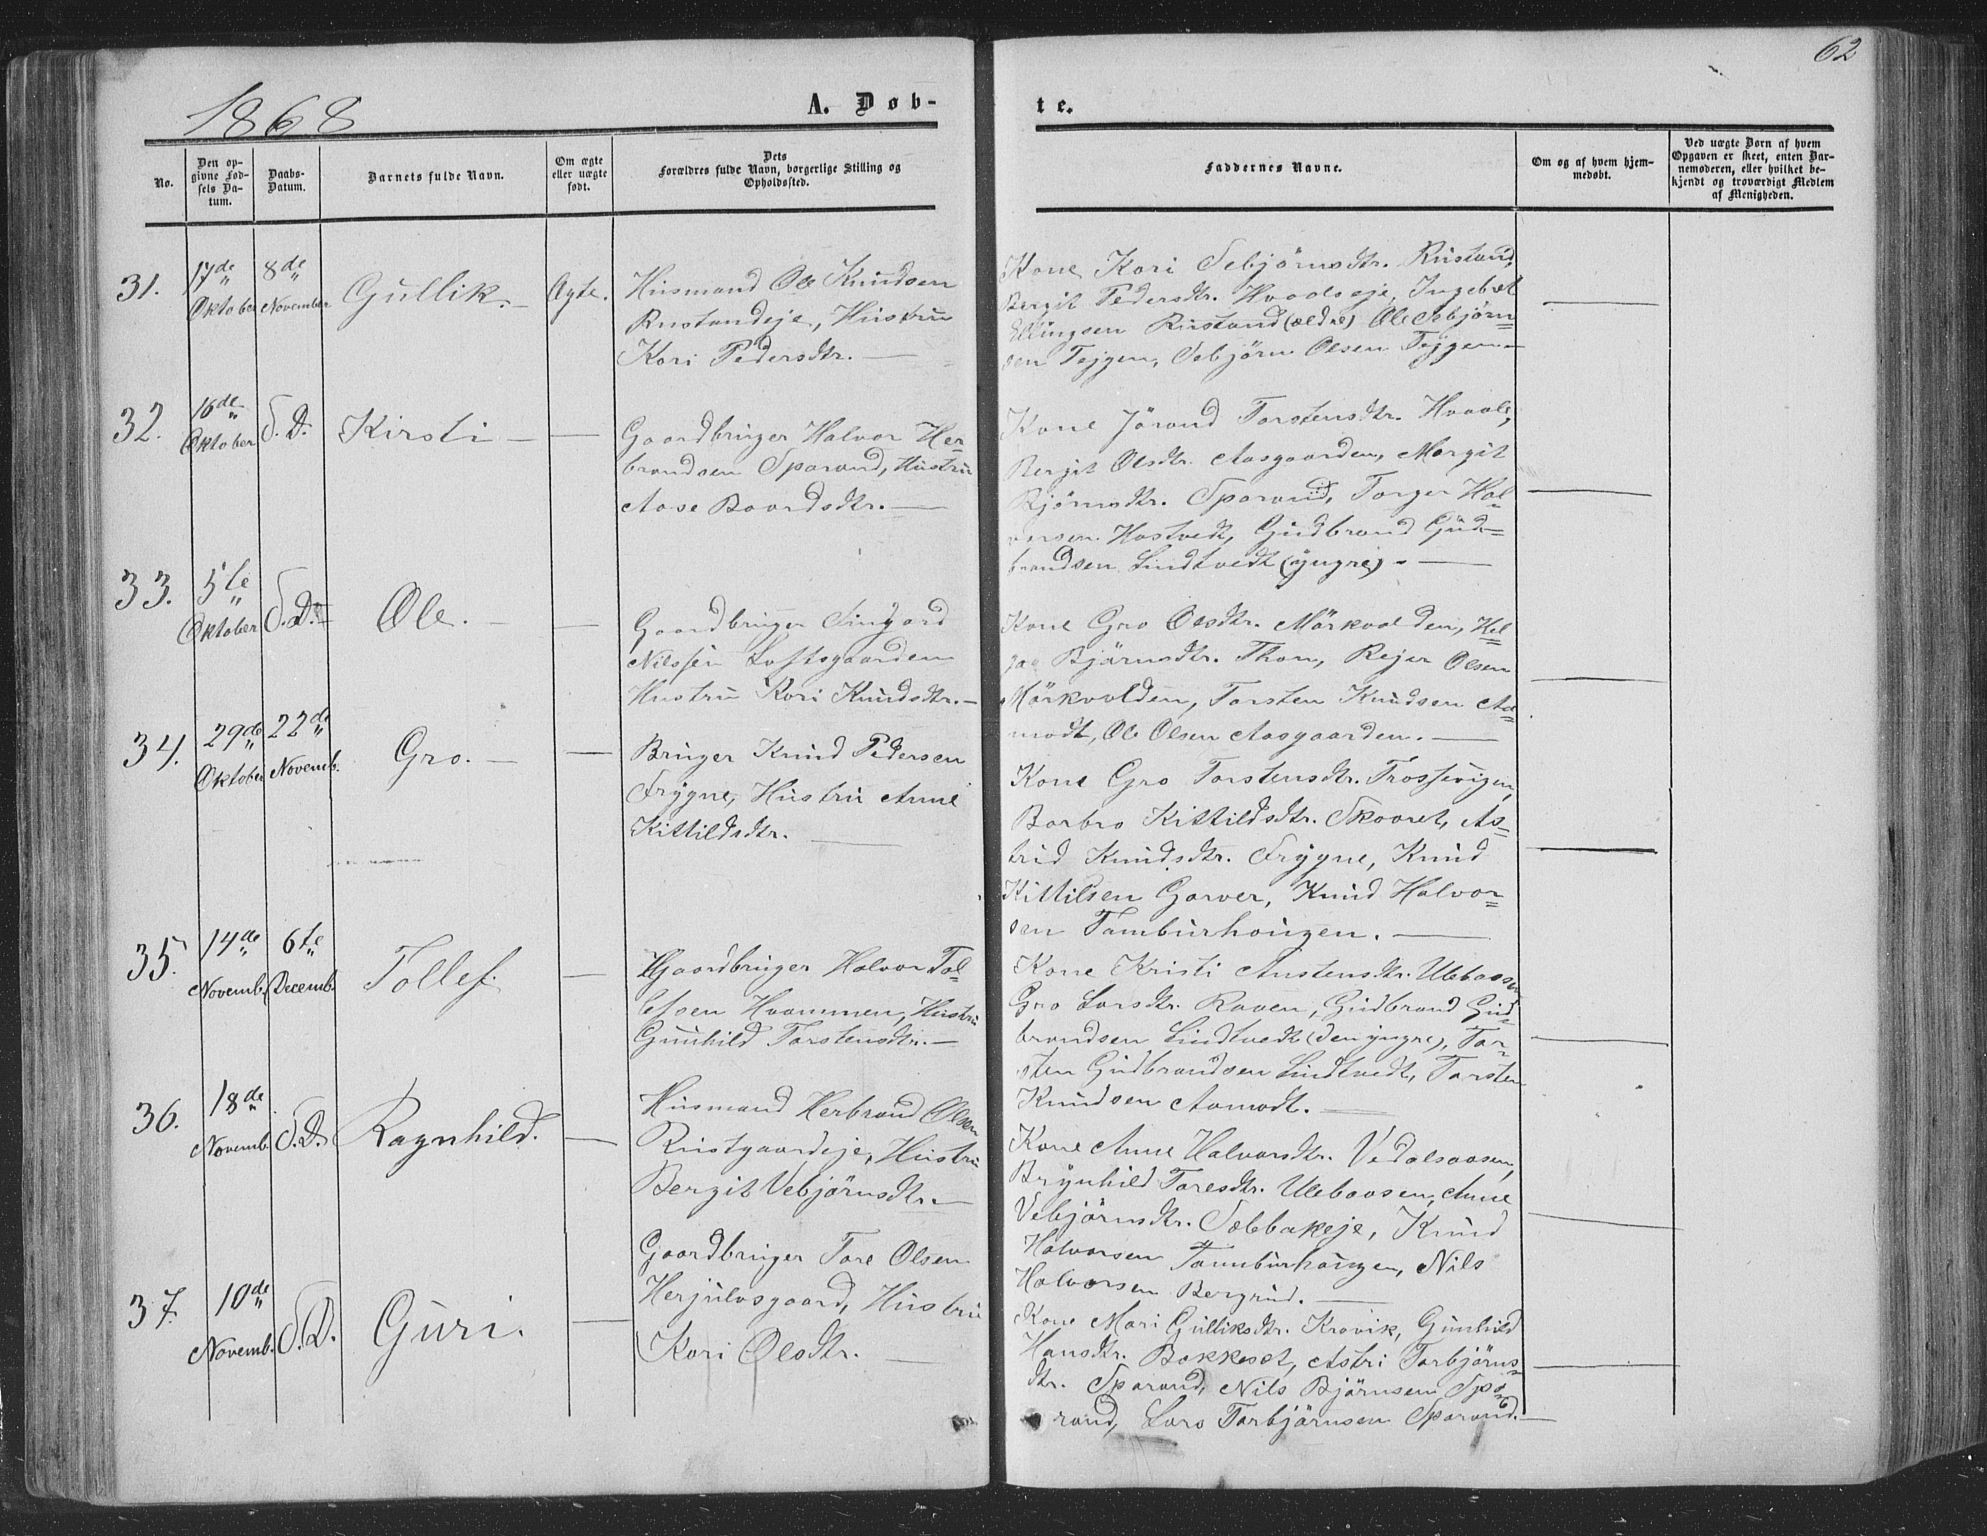 62
1868
A. Døb-
te.
No.
Den op-
givne Fød-
sels Da-
tum.
Daabs-
Datum.
Barnets fulde Navn.
Om ægte
eller uægte
født.
Dets
Forældres fulde Navn, borgerlige Stilling og
Opholdssted.
Faddernes Navne.
Om og af hvem hjem-
medøbt.
Ved uægte Børn af hvem
Opgaven er skeet, enten Bar-
nemoderen, eller hvilket be-
kjendt og troværdigt Medlem
af Menigheden.
31.
17de
Oktober
8de
November
Gullik.
Ægte.
Husmand Ole Knudsen
Rustandeje, Hustru
Kari Pedersdtr.
Kone Kari Sebjörnsdtr. Rustand,
Bergit Pedersdtr. Hvaalseje, Ingebret
Ellingsen Rustand (ældre) Ole Sebjörn=
sen Tejgen, Sebjörn Olsen Tejgen
32.
16de
Oktober
S. D.
Kirsti
Gaardbruger Halvor Her=
brandsen Sporand, Hustru
Aase Baardsdtr.
Kone Jörand Torstensdtr. Hvaale,
Bergit Olsdtr. Aasgaarden, Margit
Bjömsdtr. Sporand, Torger Hal=
vorsen Hostvedt, Gudbrand Gud=
brandsen Lindtvedt (yngre).
33.
5te
Oktober
S. D.
Ole.
Gaardbruger Singard
Nilssen Loftsgaarden
Hustru Kari Knudsdtr.
Kone Gro Olsdtr. Mörkvolden, Hel=
ga Bjömsdtr. Thon, Rejer Olsen
Mörkvolden, Torsten Knudsen Aa=
modt, Ole Olsen Aasgaarden.
34.
29de
Oktober
22de
Novemb.
Gro.
Bruger Knud Pedersen
Frygne, Hustru Anne
Kittildsdtr.
Kone Gro Torstensdtr. Trossevigen,
Barbro Kittildsdtr. Skaaret, As=
trid Knudsdtr. Frygne, Knud
Kittilsen Garver, Knud Halvor=
sen Tamburhougen.
35.
14de
Novemb.
6te
Decemb.
Tollef.
Gaardbruger Halvor Tol=
lefsen Hvammen, Hustru
Gunhild Torstensdtr.
Kone Kristi Austensdtr. Ulebaasen
Gro Larsdtr. Raaen, Gudbrand Gud=
brandsen Lindtvedt (den yngre), Tor=
sten Gudbrandsen Lindtvedt, Torsten
Knudsen Aamodt.
36.
18de
Novemb.
S. D.
Ragnhild.
Husmand Herbrand Olsen
Rustgaardeje, Hustru
Bergit Vebjörnsdtr.
Kone Anne Halvorsdtr. Vedalsaasen,
Brynhild Toresdtr. Ulebaasen, Anne
Vebjörnsdtr. Sæbbakeje, Knud
Halvorsen Tamburhaugen, Nils
Halvorsen Bergrud.
37.
10de
Novemb.
S. D.
Guri.
Gaardbruger Tore Olsen
Herjulvsgaard, Hustru
Kari Olsdtr.
Kone Mari Gulliksdtr. Kravik, Gunhild
Hansdtr. Bakkeset, Astri Torbjörns=
dtr. Sporand, Nils Bjömsen Spo=
rand, Lars Torbjörnsen Sporand.